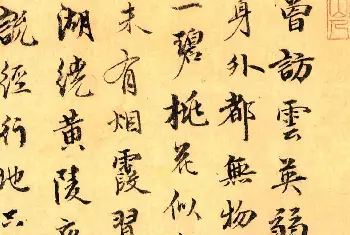 曾訪雲英
身外都無物
一碧桃花似
未有烟霞習
湖繞黄陵
說經行地